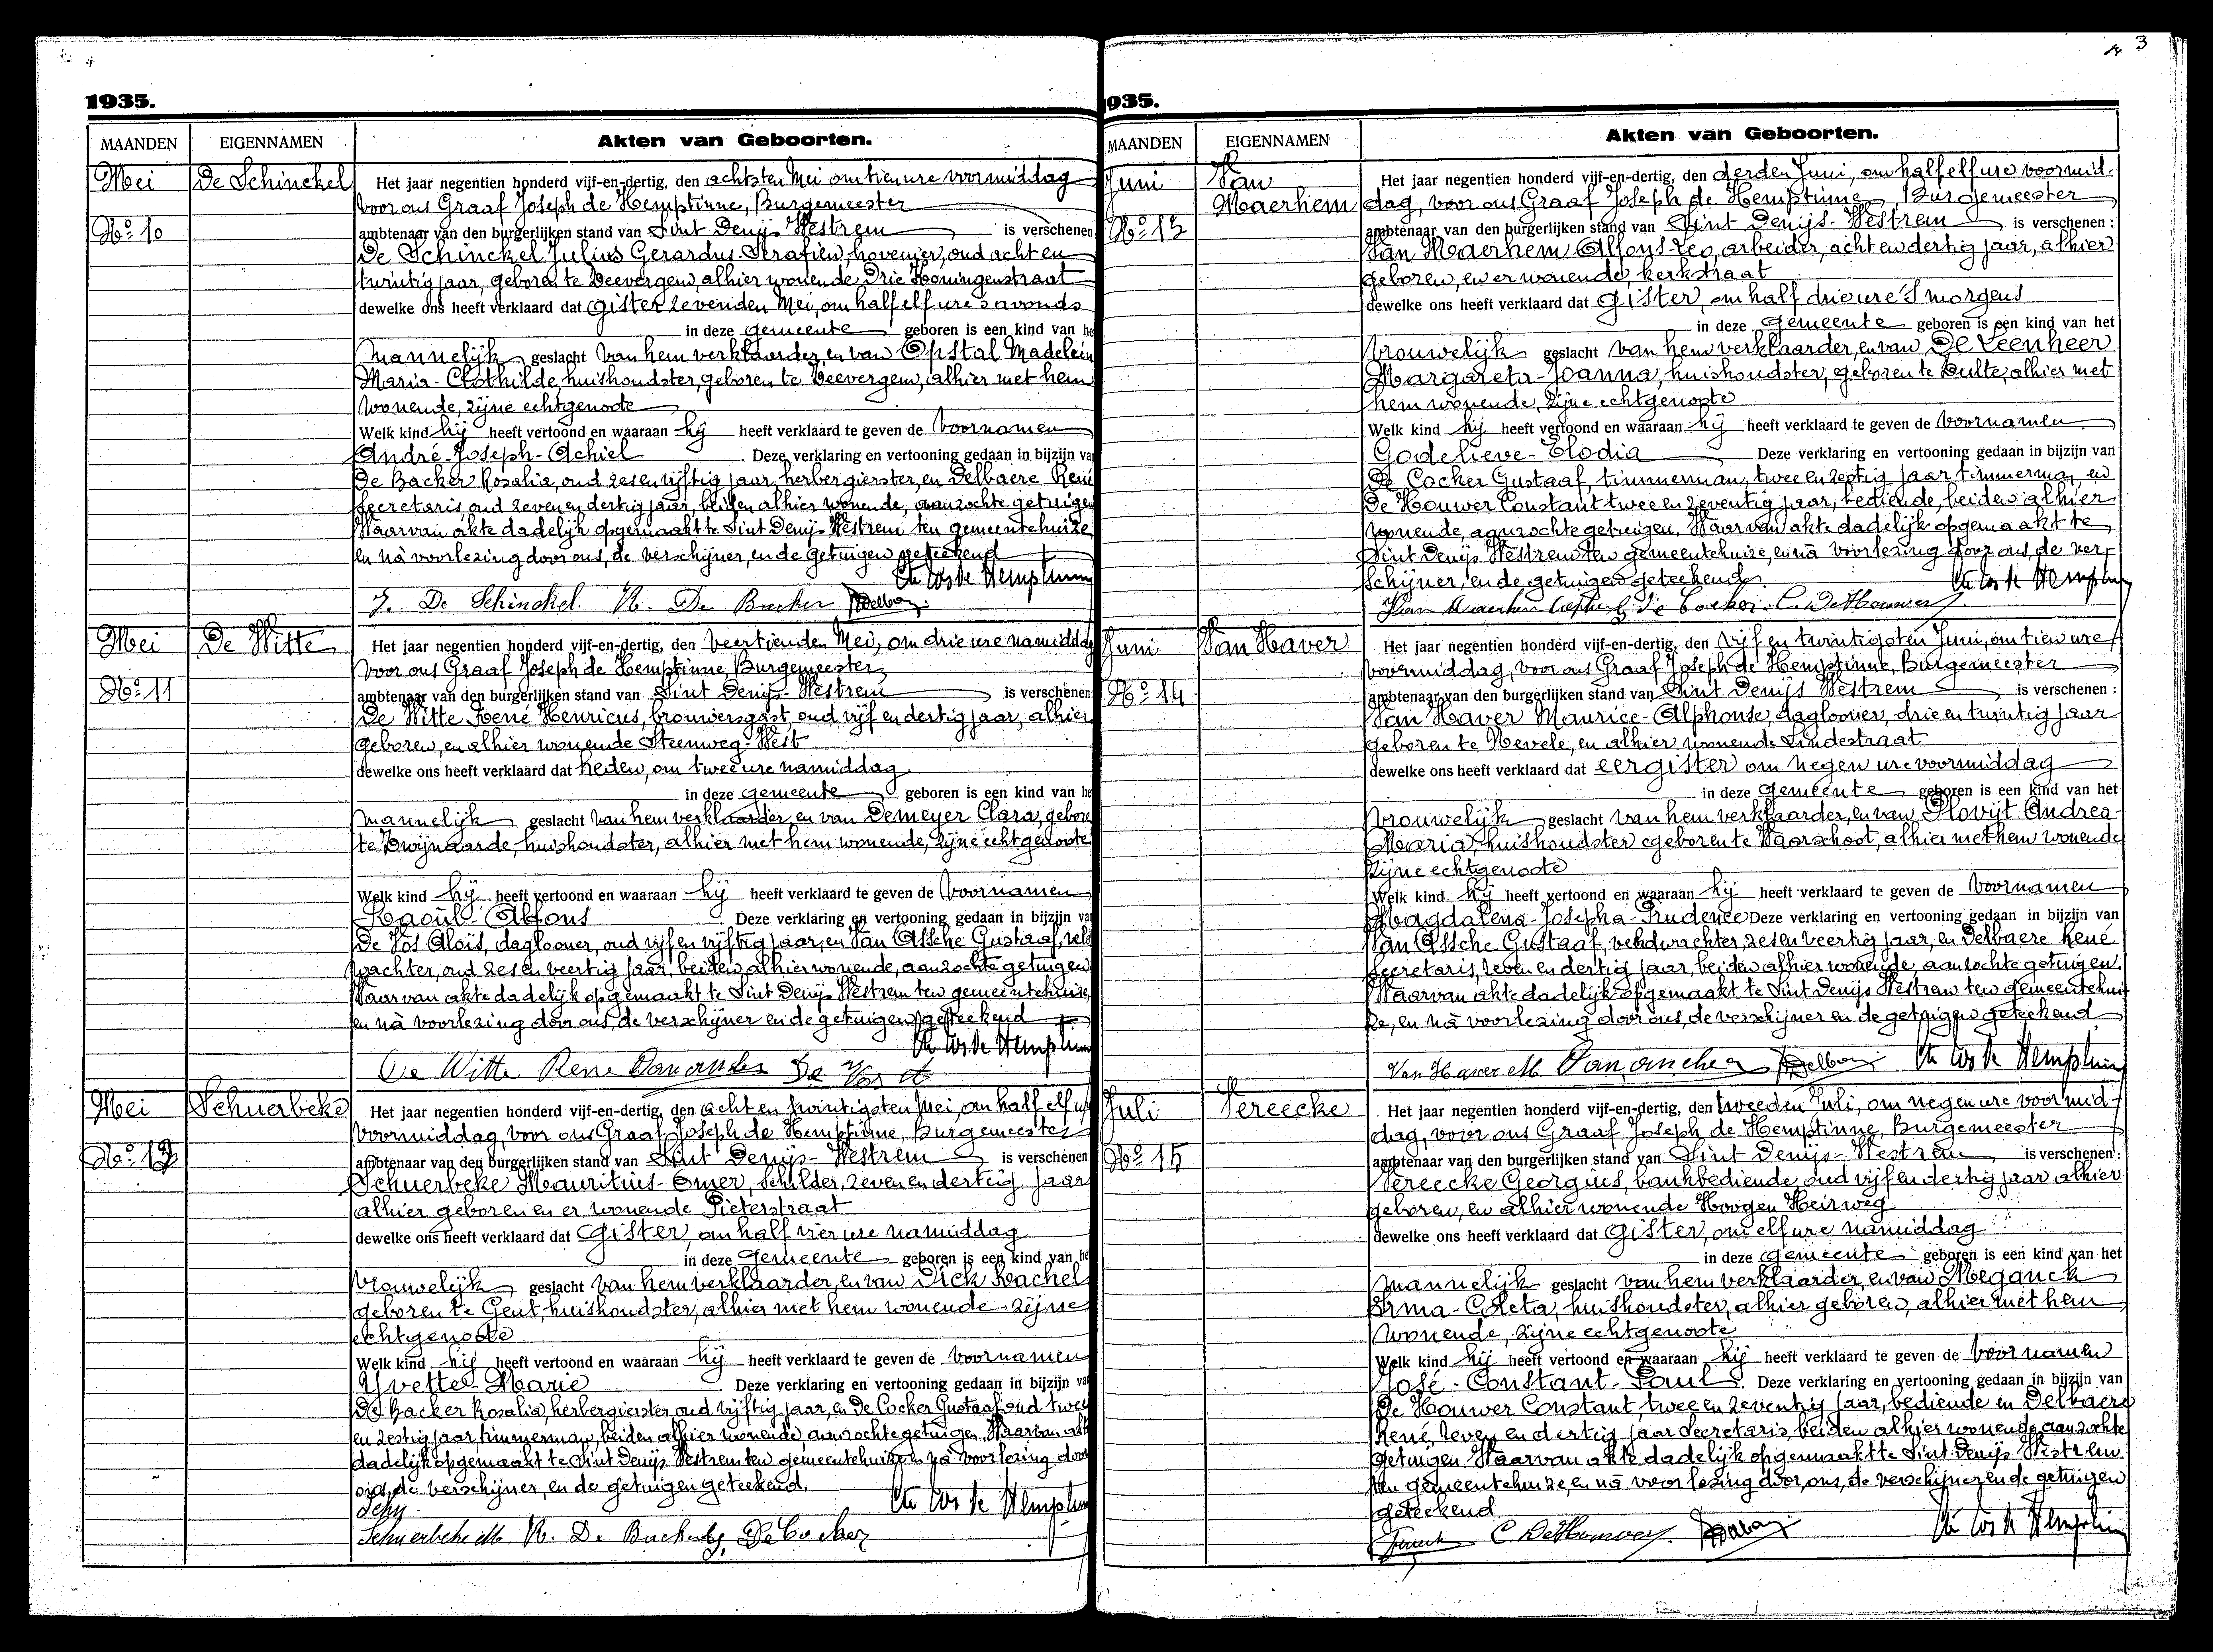 3
1935.
MAANDEN EIGENNAMEN Akten van Geboorten.
Mei De Schinckel Het jaar negentien honderd vijf-en-dertig, den achtsten Mei om tien ure voormiddag
voor ons Graaf Joseph de Hemptinne, Burgemeester
No 10 ambtenaar van den burgerlijken stand van Sint Denijs Westrem is verschenen
De Schinckel Julius Gerardus-Serafien, hovenier, oud acht en
twintig jaar, geboren te Deevergem, alhier wonende Drie Koningenstraat
dewelke ons heeft verklaard dat gister zevenden Mei, om half elf ure s'avonds
in deze gemeente geboren is een kind van he
Mannelijk geslacht van hem verklaarder, en van Opstal Madelein
Maria-Clothilde, huishoudster, geboren te Deevergem, alhier met hem
wonende, zijne echtgenoote
Welk kind hij heeft vertoond en waaraan hij heeft verklaard te geven de voornamen
André-Joseph-Achiel Deze verklaring en vertooning gedaan in bijzijn va
De Backer Rosalia, oud zes en vijftig jaar, herbergierster, en Delbaere René
secretaris oud zeven en dertig jaar, beiden alhier wonende, aanzochte getuigen
Waarvan akte dadelijk opgemaakt te Sint Denijs Westrem ten gemeentehuize
en nà voorlezing door ons, de verschijner, en de getuigen geteekend
J. De Schinckel. R. De Backer
Mei De Witte Het jaar negentien honderd vijf-en-dertig, den veertienden Mei, om drie ure namiddag
voor ons Graaf Joseph de Hemptinne, Burgemeester
No 11 ambtenaar van den burgerlijken stand van Sint Denijs-Westrem is verschenen
De Witte René Henricus, brouwersgast, oud vijf en dertig jaar, alhier
geboren, en alhier wonende Steenweg-West
dewelke ons heeft verklaard dat heden, om twee ure namiddag
in deze gemeente geboren is een kind van he
Mannelijk geslacht van hem verklaarder en van Demeyer Clara, gebore
te Zwijnaarde, huishoudster, alhier met hem wonende, zijne echtgenoote
Welk kind hij heeft vertoond en waaraan hij heeft verklaard te geven de voornamen
Raoul-Alfons Deze verklaring en vertooning gedaan in bijzijn va
De Vos Aloïs, daglooner, oud vijf en vijftig jaar, en Van Assche Gustaaf, veld
wachter, oud zes en veertig jaar, beiden alhier wonende, aanzochte getuigen
Waarvan akte dadelijk opgemaakt te Sint Denijs Westrem ten gemeentehuize,
en nà voorlezing door ons, de verschijner en de getuigen geteekend
De Witte Rene De Vos
Mei Schuerbeke Het jaar negentien honderd vijf-en-dertig, den acht en twintigsten Mei, om half elf ure
voormiddag, voor ons Graaf Joseph de Hemptinne, Burgemeester
No 12 ambtenaar van den burgerlijken stand van Sint Denijs-Westrem is verschenen
Schuerbeke Mauritius-Omer, schilder, zeven en dertig jaar
alhier geboren en er wonende Pieterstraat
dewelke ons heeft verklaard dat Gister, om half vier ure namiddag
in deze Gemeente geboren is een kind van he
Vrouwelijk geslacht van hem verklaarder, en van Dick Rachel
geboren te Gent, huishoudster, alhier met hem wonende zijne
echtgenoote
Welk kind hij heeft vertoond en waaraan hij heeft verklaard te geven de voornamen
Yvette-Marie Deze verklaring en vertooning gedaan in bijzijn va
De Backer Rosalia, herbergierster oud vijftig jaar, en De Cocker Gustaaf oud twee
en zestig jaar, timmerman, beiden alhier wonende, aanzochte getuigen. Waarvan akt
dadelijk opgemaakt te Sint Denijs Westrem ten gemeentehuize, en nà voorlezing door
ons, de verschijner, en de getuigen geteekend.
Schu
Schuerbeke M. R. De Backer G. De Cocker
935.
MAANDEN EIGENNAMEN Akten van Geboorten.
Juni Van Maerhem Het jaar negentien honderd vijf-en-dertig, den derden Juni, om half elf ure voormid-
dag, voor ons Graaf Joseph de Hemptinne, Burgemeester
No 13 ambtenaar van den burgerlijken stand van Sint Denijs-Westrem is verschenen :
Van Maerhem Alfons-Leo, arbeider, acht en dertig jaar, alhier
geboren, en er wonende, kerkstraat
dewelke ons heeft verklaard dat Gister, om half drie ure 's morgens
in deze gemeente geboren is een kind van het
Vrouwelijk geslacht van hem verklaarder, en van De Leenheer
Margareta-Joanna, huishoudster, geboren te Zulte, alhier met
hem wonende, zijne echtgenoote
Welk kind hij heeft vertoond en waaraan hij heeft verklaard te geven de voornamen
Godelieve-Elodia Deze verklaring en vertooning gedaan in bijzijn van
De Cocker Gustaaf, timmerman, twee en zestig jaar timmerman, en
De Houwer Constant twee en zeventig jaar, bediende, beiden alhier
wonende, aanzochte getuigen. Waarvan akte dadelijk opgemaakt te
Sint Denijs Westrem ten gemeentehuize, en nà voorlezing door ons, de ver-
schijner, en de getuigen geteekend.
G. De Cocker C. De Houwer
Juni Van Haver Het jaar negentien honderd vijf-en-dertig, den vijf en twintigsten Juni, om tien ure
voormiddag, voor ons Graaf Joseph de Hemptinne, Burgemeester
No 14 ambtenaar van den burgerlijken stand van Sint Denijs Westrem is verschenen :
Van Haver Maurice-Alphonse, daglooner, drie en twintig jaar
geboren te Nevele, en alhier wonende Lindestraat
dewelke ons heeft verklaard dat eergister om negen ure voormiddag
in deze Gemeente geboren is een kind van het
Vrouwelijk geslacht van hem verklaarder, en van Plovijt Andrea-
Maria, huishoudster geboren te Waarschoot, alhier met hem wonende
zijne echtgenoote
Welk kind hij heeft vertoond en waaraan hij heeft verklaard te geven de voornamen
Magdalena-Josepha-Prudence Deze verklaring en vertooning gedaan in bijzijn van
Van Assche Gustaaf, veldwachter, zes en veertig jaar, en Delbaere René
secretaris, zeven en dertig jaar, beiden alhier wonende, aanzochte getuigen.
Waarvan akte dadelijk opgemaakt te Sint Denijs Westrem ten gemeentehui-
ze, en nà voorlezing door ons, de verschijner en de getuigen geteekend
Van Haver M.
Juli Vereecke Het jaar negentien honderd vijf-en-dertig, den tweeden Juli, om negen ure voormid-
dag, voor ons Graaf Joseph de Hemptinne, Burgemeester
No 15 ambtenaar van den burgerlijken stand van Sint Denijs-Westrem is verschenen :
Vereecke Georgius, bankbediende, oud vijf en dertig jaar alhier
geboren, en alhier wonende Hoogen Heirweg
dewelke ons heeft verklaard dat Gister, om elf ure namiddag
in deze gemeente geboren is een kind van het
Mannelijk geslacht van hem verklaarder, en van Meganck
Irma-Coleta, huishoudster, alhier geboren, alhier met hem
wonende, zijne echtgenoote
Welk kind hij heeft vertoond en waaraan hij heeft verklaard te geven de voornamen
José-Constant-Paul. Deze verklaring en vertooning gedaan in bijzijn van
De Houwer Constant, twee en zeventig jaar, bediende en Delbaere
René, zeven en dertig jaar secretaris, beiden alhier wonende, aanzochte
getuigen. Waarvan akte dadelijk opgemaakt te Sint Denijs Westrem
ten gemeentehuize, en nà voorlezing door, ons, de verschijner, en de getuigen
geteekend
C. De Houwer